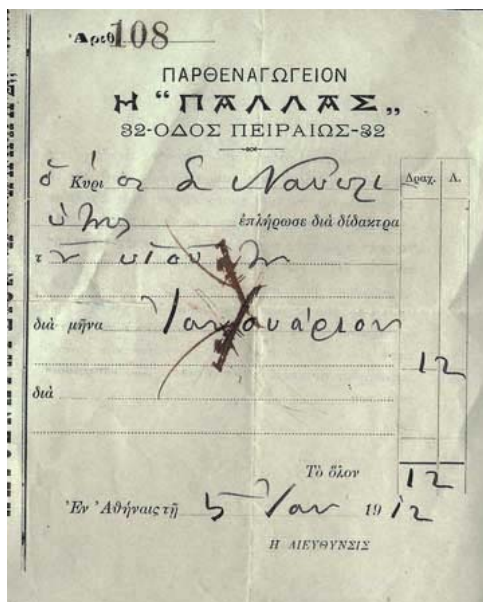 Ἀριθ. 108
ΠΑΡΘΕΝΑΓΩΓΕΙΟΝ
Η “ΠΑΛΛΑΣ„
32-ΟΔΟΣ ΠΕΙΡΑΙΩΣ-32
ὁ Κύριος Δραχ. Λ.
ἐπλήρωσε διὰ δίδακτρα
τοῦ υἱοῦ της
διὰ μῆνα Ἰανουάριον
12
διὰ
Τὸ ὅλον 12
Ἐν Ἀθήναις τῇ 5 Ἰαν 1912
Η ΔΙΕΥΘΥΝΣΙΣ